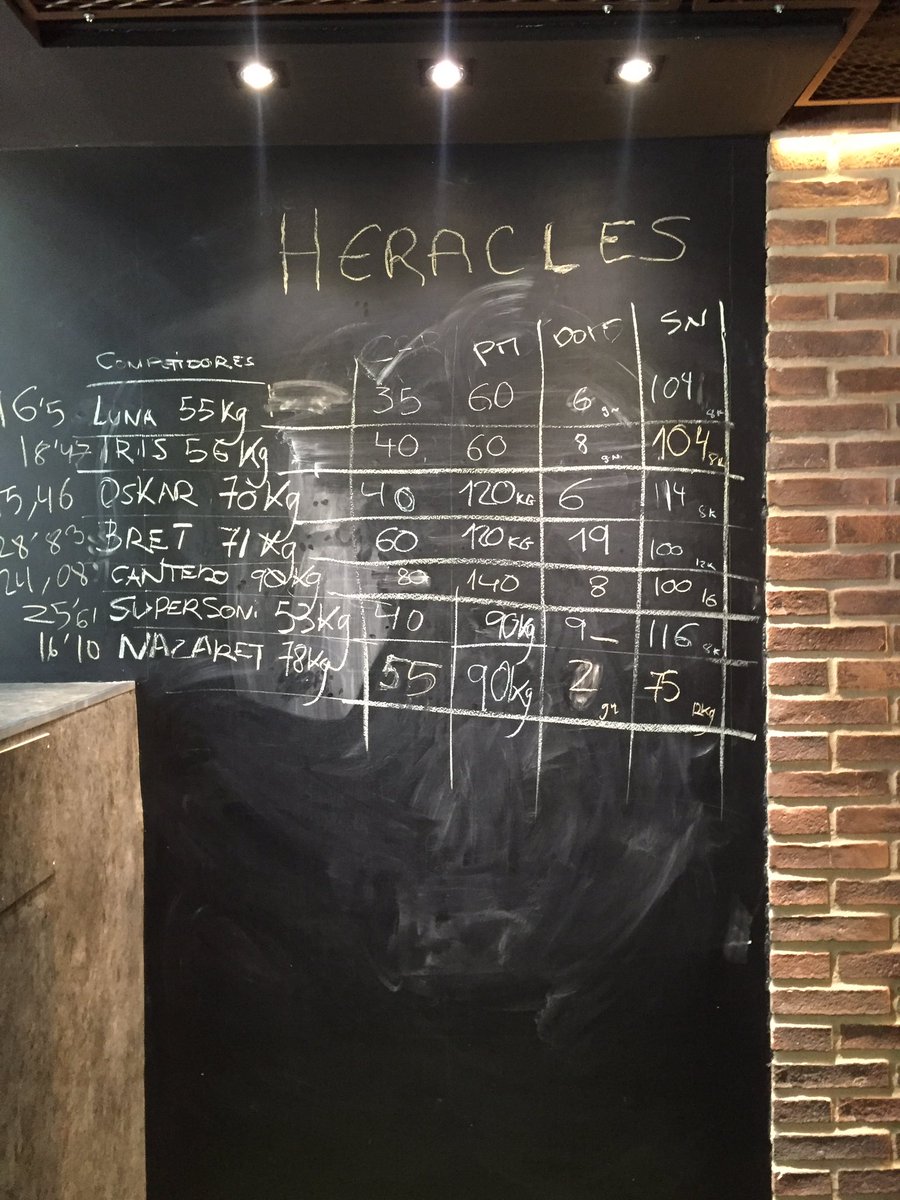 HERACLES
COMPETIDORES PM SN
16'5 LUNA 55Kg 35 60 6 104 8K
IRIS 56Kg 40 60 8 104 8K
5,46 OSKAR 70Kg 40 120KG 6 114 8K
28'83 BRET 71Kg 60 120KG 19 100 12K
24,08 CANTERO 90Kg 80 140 8 100 16
25'61 SUPERSONI 53Kg 40 90Kg 9 116 8K
16'10 NAZARET 78Kg 55 90Kg 2 75 12Kg